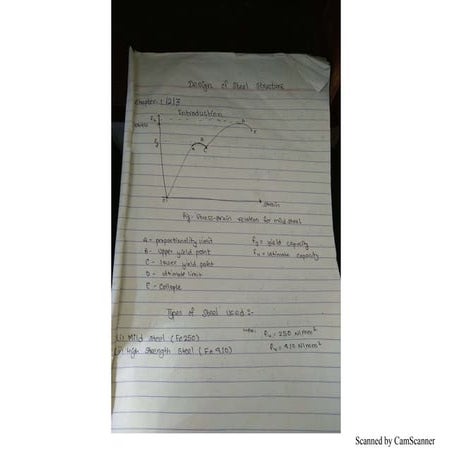 Design of Steel Structure
Chapter: 1/2/3
Introduction
fu
fy
A
B
C
D
E
Strain
Fig:- Stress-strain relation for mild steel
A = proportionality limit
fy = yield capacity
B - upper yield point
fu = ultimate capacity
C - lower yield point
D - ultimate limit
E - Collapse
Types of Steel used :-
(i) Mild Steel (Fe250)
fu = 250 N/mm²
(ii) High Strength Steel (Fe 410)
fu = 410 N/mm²
Scanned by CamScanner